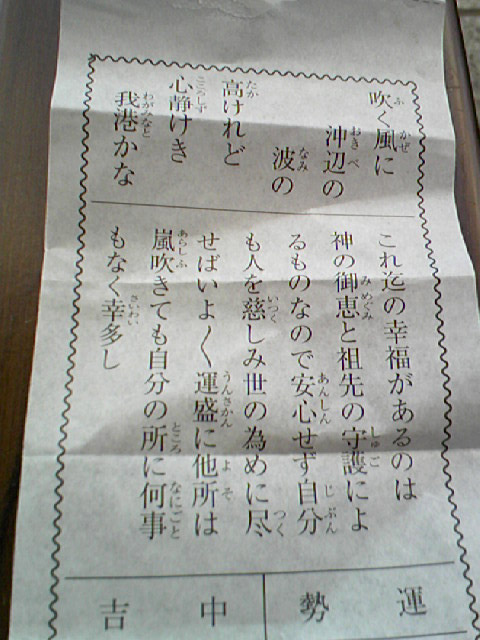 吹く風に
沖辺の
波の
高けれど
心静けき
我港かな
これ迄の幸福があるのは
神の御恵と祖先の守護によ
るものなので安心せず自分
も人を慈しみ世の為めに尽
せばいよ〱運盛に他所は
嵐吹きても自分の所に何事
もなく幸多し
運勢
中吉